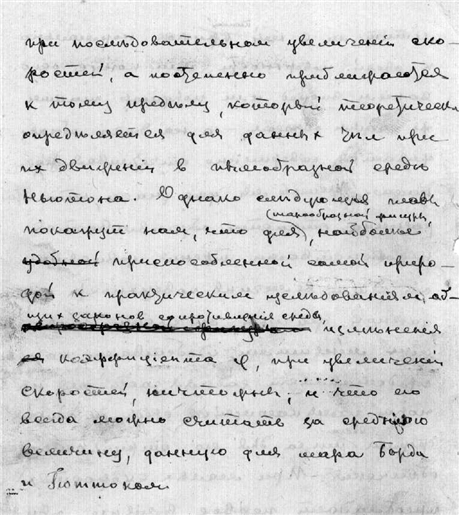 при последовательном увеличенiи ско-
ростей, а постепенно приближается
к тому предѣлу, который теоретически
опредѣляется для данных тѣл при
их движенiи в пылеобразной средѣ
Ньютона. Однако слѣдующiя главы
(шарообразной фигуры)
покажут нам, что для, наиболѣе
удобной приспособленной самой приро-
дой к практическим изслѣдованiям об-
щих законов сопротивленiя среды,
измѣненiя
коэффицiента φ, при увеличенiи
скоростей, ничтожны, и что его
всегда можно считать за среднюю
величину, данную для шара Борда
и Гюттоном